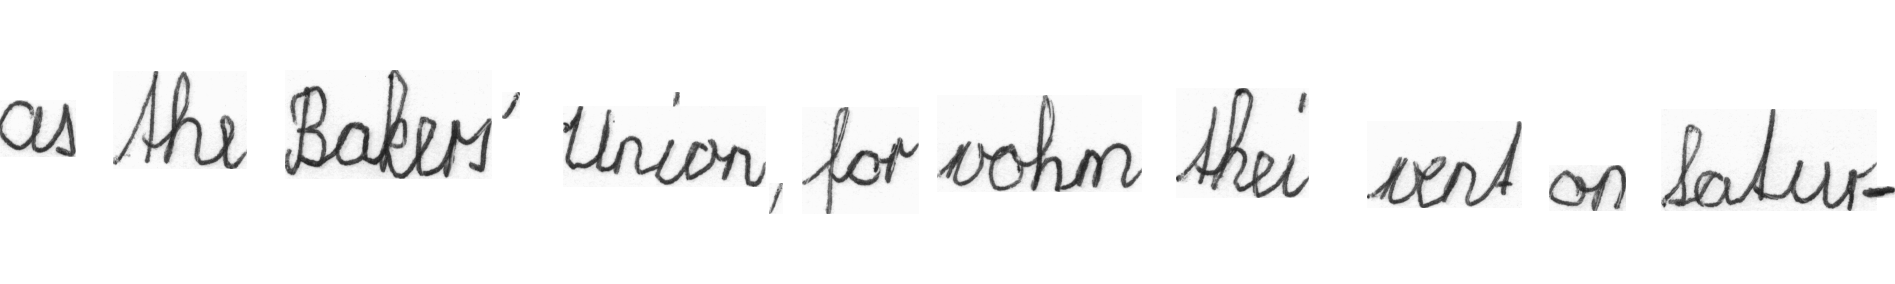 as the Bakers' Union, for vohm thei vent on Satur-